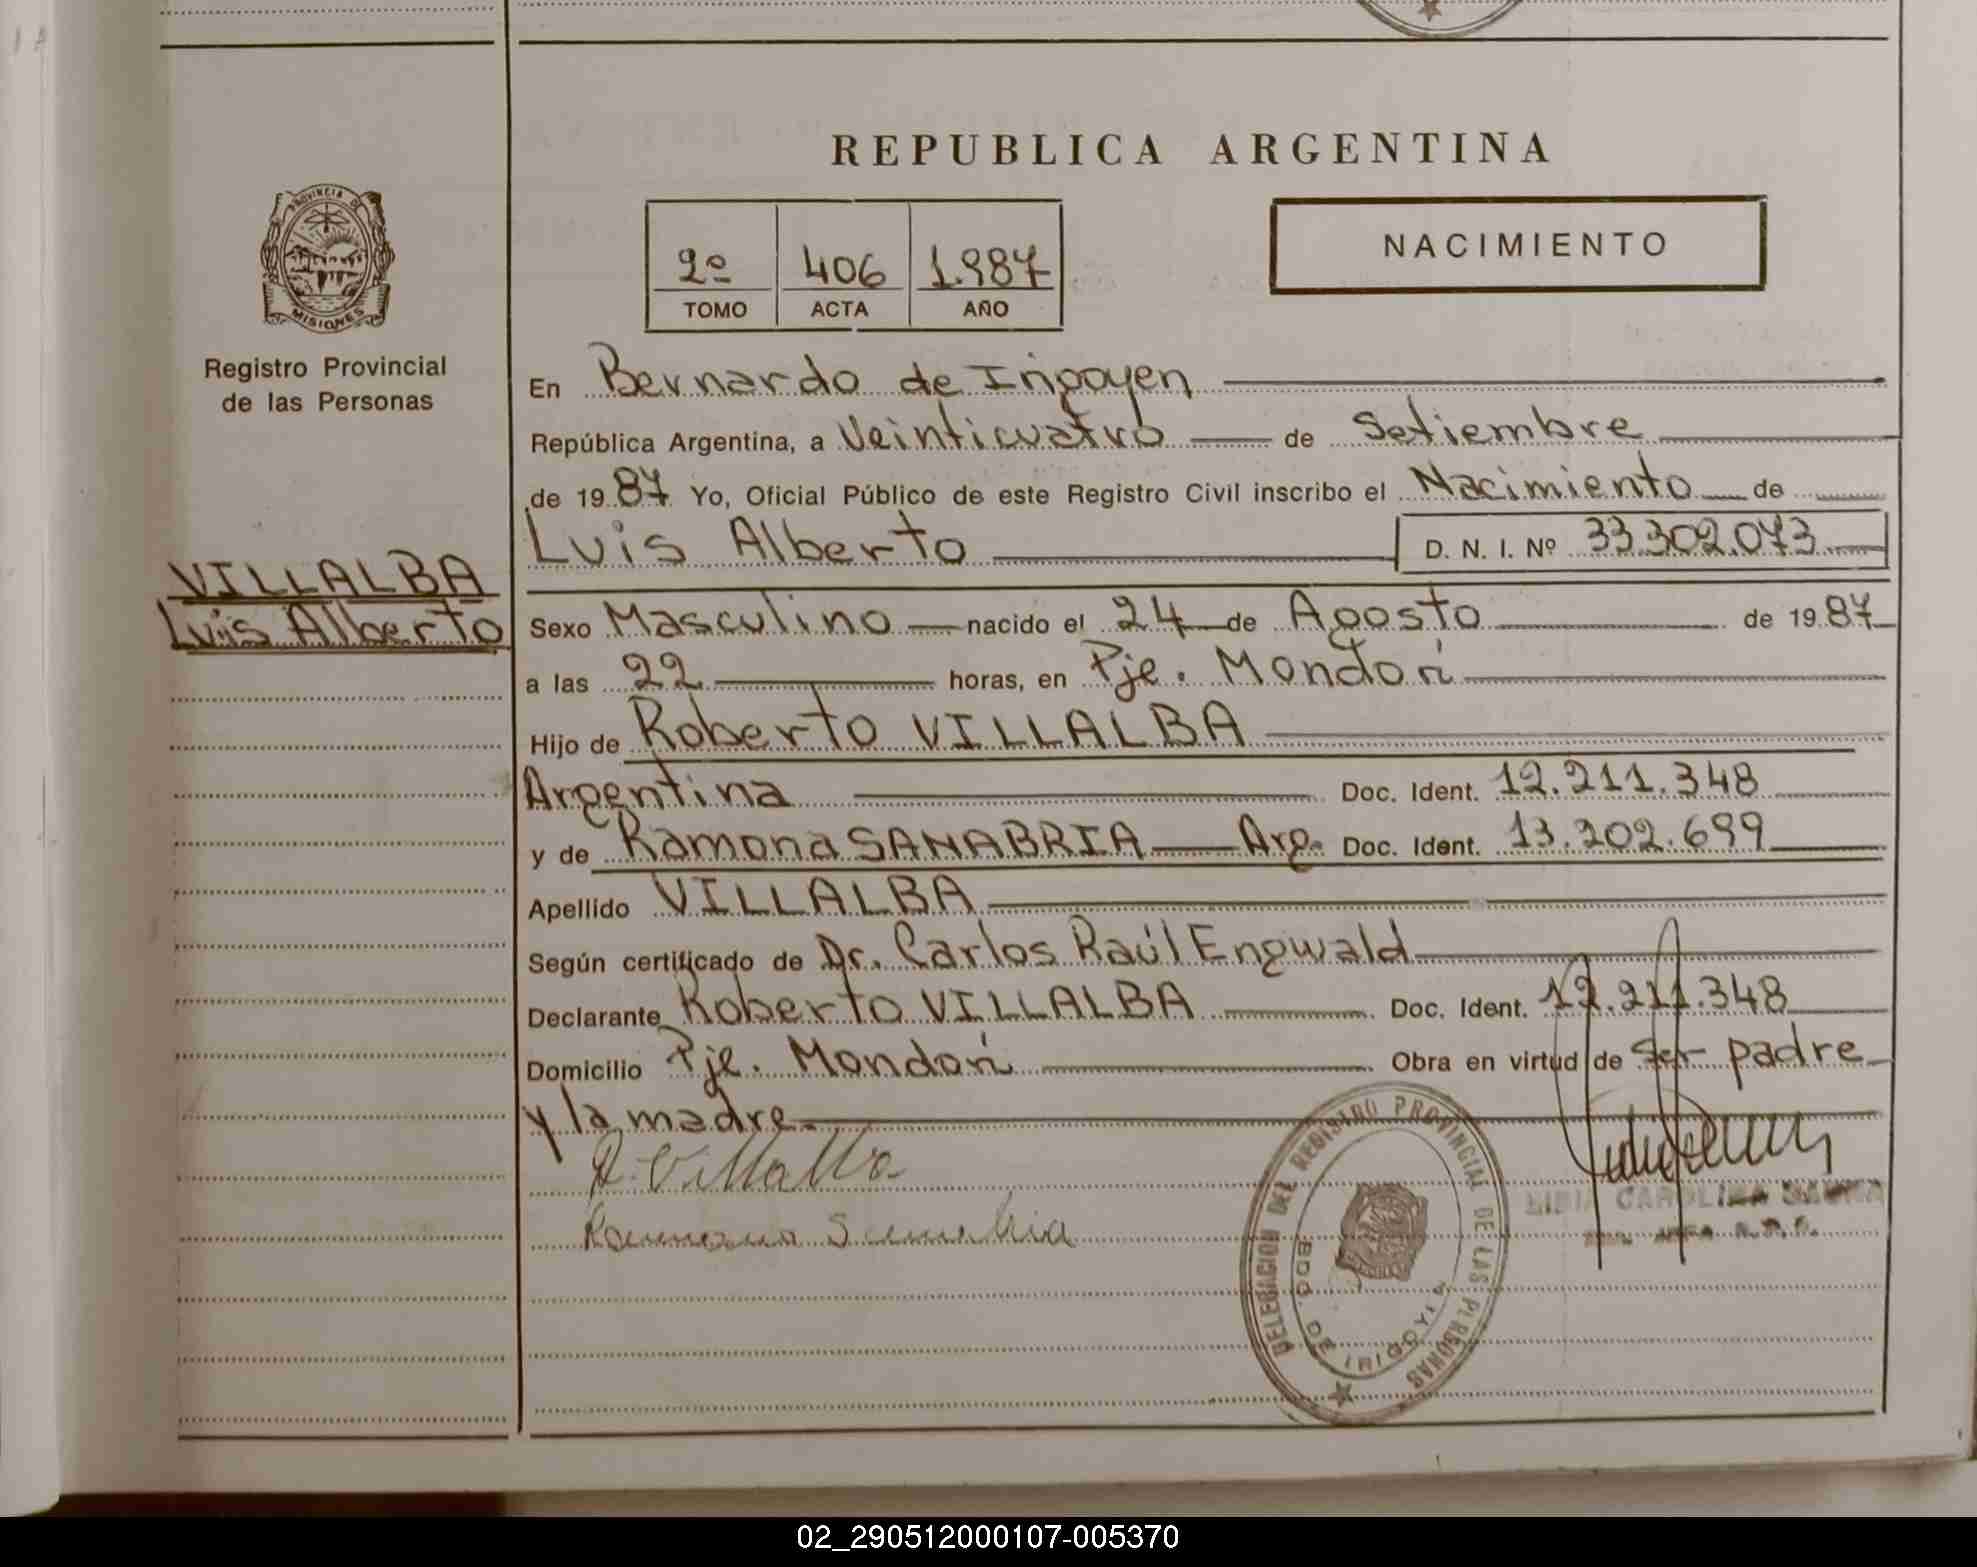 REPUBLICA ARGENTINA
PROVINCIA DE
MISIONES
Registro Provincial
de las Personas
2º 406 1.987
TOMO ACTA AÑO
NACIMIENTO
En Bernardo de Irigoyen
República Argentina, a Veinticuatro de Setiembre
de 1987 Yo, Oficial Público de este Registro Civil inscribo el Nacimiento de
Luis Alberto D. N. I. Nº 33.302.073
VILLALBA
Luis Alberto
Sexo Masculino nacido el 24 de Agosto de 1987
a las 22 horas, en Pje. Mondorí
Hijo de Roberto VILLALBA
Argentina Doc. Ident. 12.211.348
y de Ramona SANABRIA Arg. Doc. Ident. 13.202.699
Apellido VILLALBA
Según certificado de Dr. Carlos Raúl Engwald
Declarante Roberto VILLALBA Doc. Ident. 12.211.348
Domicilio Pje. Mondorí Obra en virtud de ser padre
y la madre.
R. Villalba
Ramona Sanabria
DELEGACION DEL REGISTRO PROVINCIAL DE LAS PERSONAS
BDO. DE IRIGOYEN
CAROLINA
02_290512000107-005370